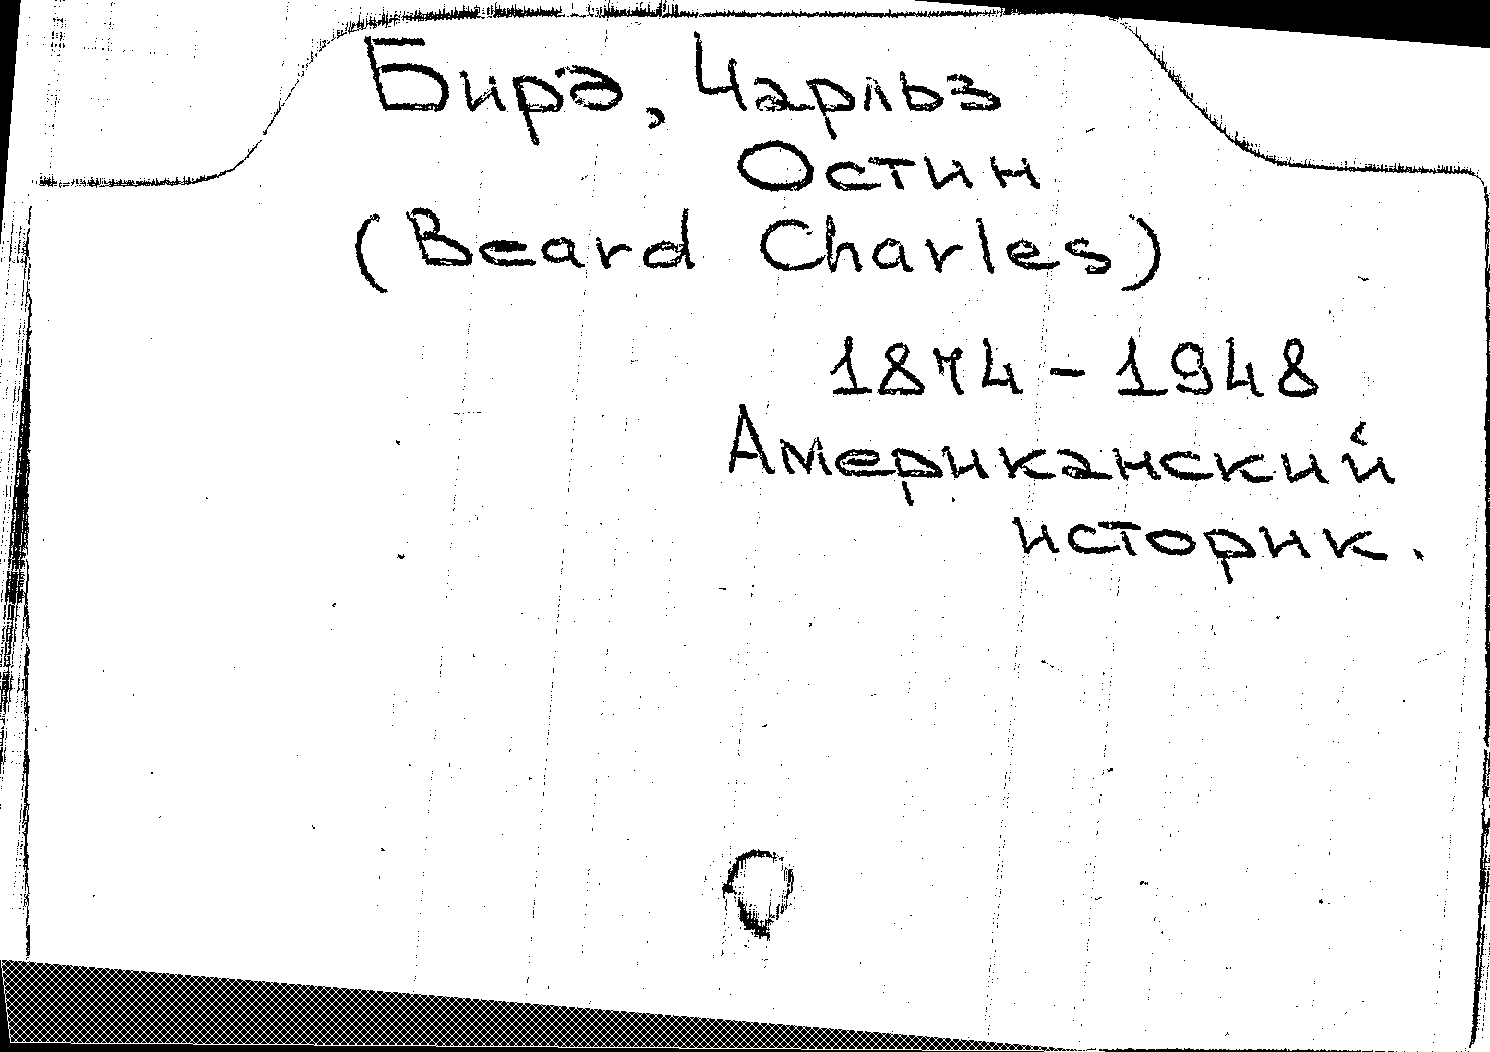 Бирд, Чарльз
Остин
(Beard Charles)
1874-1948
Американский
историк.